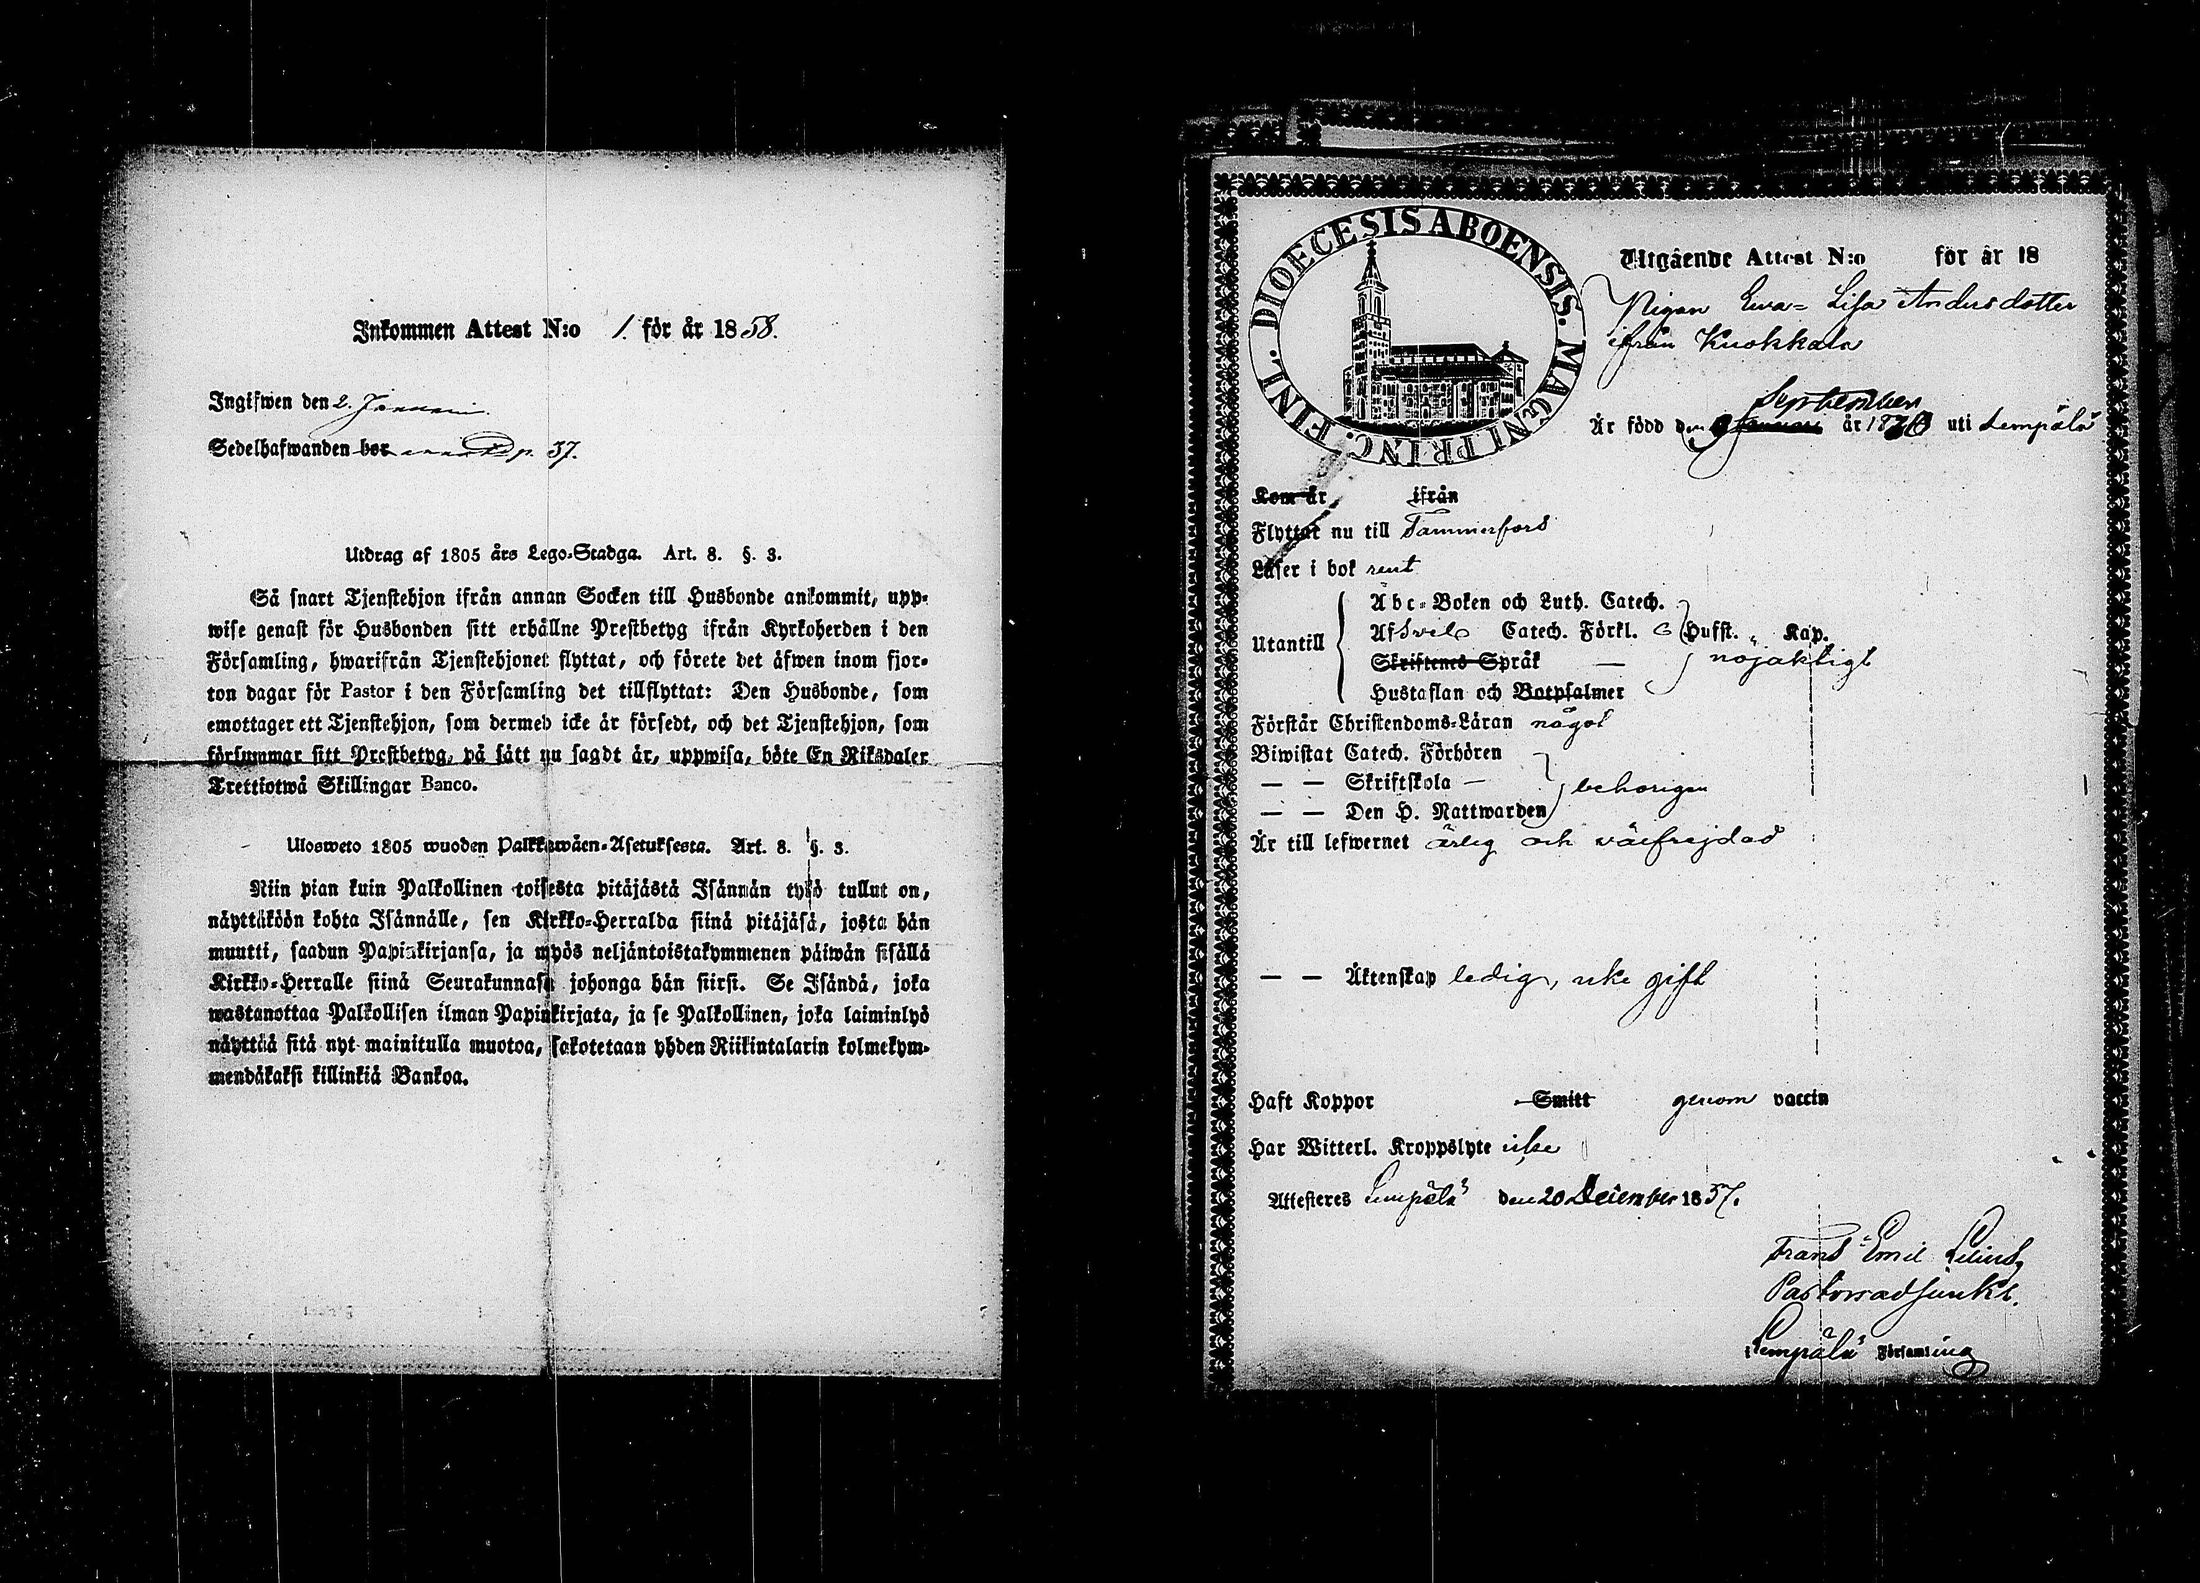 Inkommen Attest N:o 1. för år 1858.
Ingifwen den 2. Januari
Sedelhafwanden bor p. 37.
Utdrag af 1805 års Lego-Stadga. Art. 8. §. 3.
Så snart Tjenstehjon ifrån annan Socken till Husbonde ankommit, upp-
wise genast för Husbonden sitt erhållne Prestbetyg ifrån Kyrkoherden i den
Församling, hwarifrån Tjenstehjonet flyttat, och förete det äfwen inom fjor-
ton dagar för Pastor i den Församling det tillflyttat: Den Husbonde, som
emottager ett Tjenstehjon, som dermed icke är försedt, och det Tjenstehjon, som
försummar sitt Prestbetyg, på sätt nu sagdt är, uppwisa, böte En Riksdaler
Trettiotwå Skillingar Banco.
Ulosweto 1805 wuoden Palkkawäen-Asetuksesta. Art. 8. §. 3.
Niin pian kuin Palkollinen toisesta pitäjästä Isännän tykö tullut on,
näyttäköön kohta Isännälle, sen Kirkko-Herralda siinä pitäjäsä, josta hän
muutti, saadun Papinkirjansa, ja myös neljäntoistakymmenen päiwän sisällä
Kirkko-Herralle siinä Seurakunnasa johonga hän siirsi. Se Isändä, joka
wastanottaa Palkollisen ilman Papinkirjata, ja se Palkollinen, joka laiminlyö
näyttää sitä nyt mainitulla muotoa, sakotetaan yhden Riikintalarin kolmekym-
mendäkaksi killinkiä Bankoa.
DIOECESIS ABOENSIS. MAGNI PRINC. FINL.
Utgående Attest N:o för år 18
Pigan Ewa-Lisa Andersdotter
ifrån Kuokkala
September
Är född den Januari år 18 uti Lempälä
Kom år ifrån
Flyttat nu till Tammerfors
Läser i bok rent
Utantill
Abc-Boken och Luth. Catech.
Af Svel. Catech. Förkl. Hufst. Kap.
Skriftenes Språk — nöjaktigt
Hustaflan och Botpsalmer
Förstår Christendoms-Läran något
Biwistat Catech. Förhören
— — Skriftskola — behörigen
— — Den H. Nattwarden
Är till lefwernet ärlig och välfrejdad
— — Äktenskap ledig, icke gift
Haft Koppor Smitt genom vaccin
Har Witterl. Kroppslyte icke
Attesteres Lempälä den 20 December 1857.
Frans Emil
Pastorsadjunkt.
i Lempälä Församling